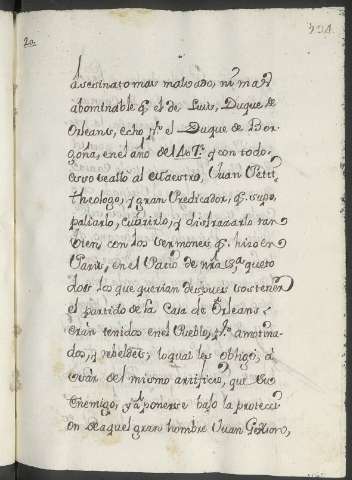 2a
asesinato mas malvado, ni mas
abominable q. el de Luis, Duque de
Orleans, echo pr. el Duque de Bor-
goña, en el año del 407. y con todo
esso se allò al Maestro, Juan Petit,
theologo, y gran Predicador, q. supo,
paliarlo, cubrirlo, y disfrazarlo tan
bien con los sermones q. hizo en
Paris, en el Patio de nra Sa. que to
dos los que querian despues sostener
el partido de la Casa de Orleans,
eràn tenidos en el Pueblo, pr. amotina-
dos, y rebeldes, loqual les obligò, à
usàr del mismo artificio, que su
Enemigo, y à ponerse bajo la protecci
on de aquel gran hombre Juan Gerson,